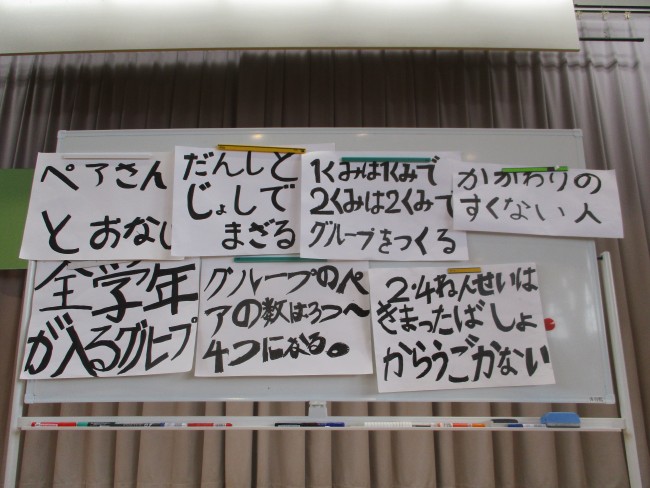 ペアさん
とおなじ
だんしと
じょしで
まざる
1くみは1くみで
2くみは2くみで
グループをつくる
かかわりの
すくない人
全学年
が入るグループ
グループのペ
アの数は3つ〜
4つになる。
2・4ねんせいは
きまったばしょ
からうごかない